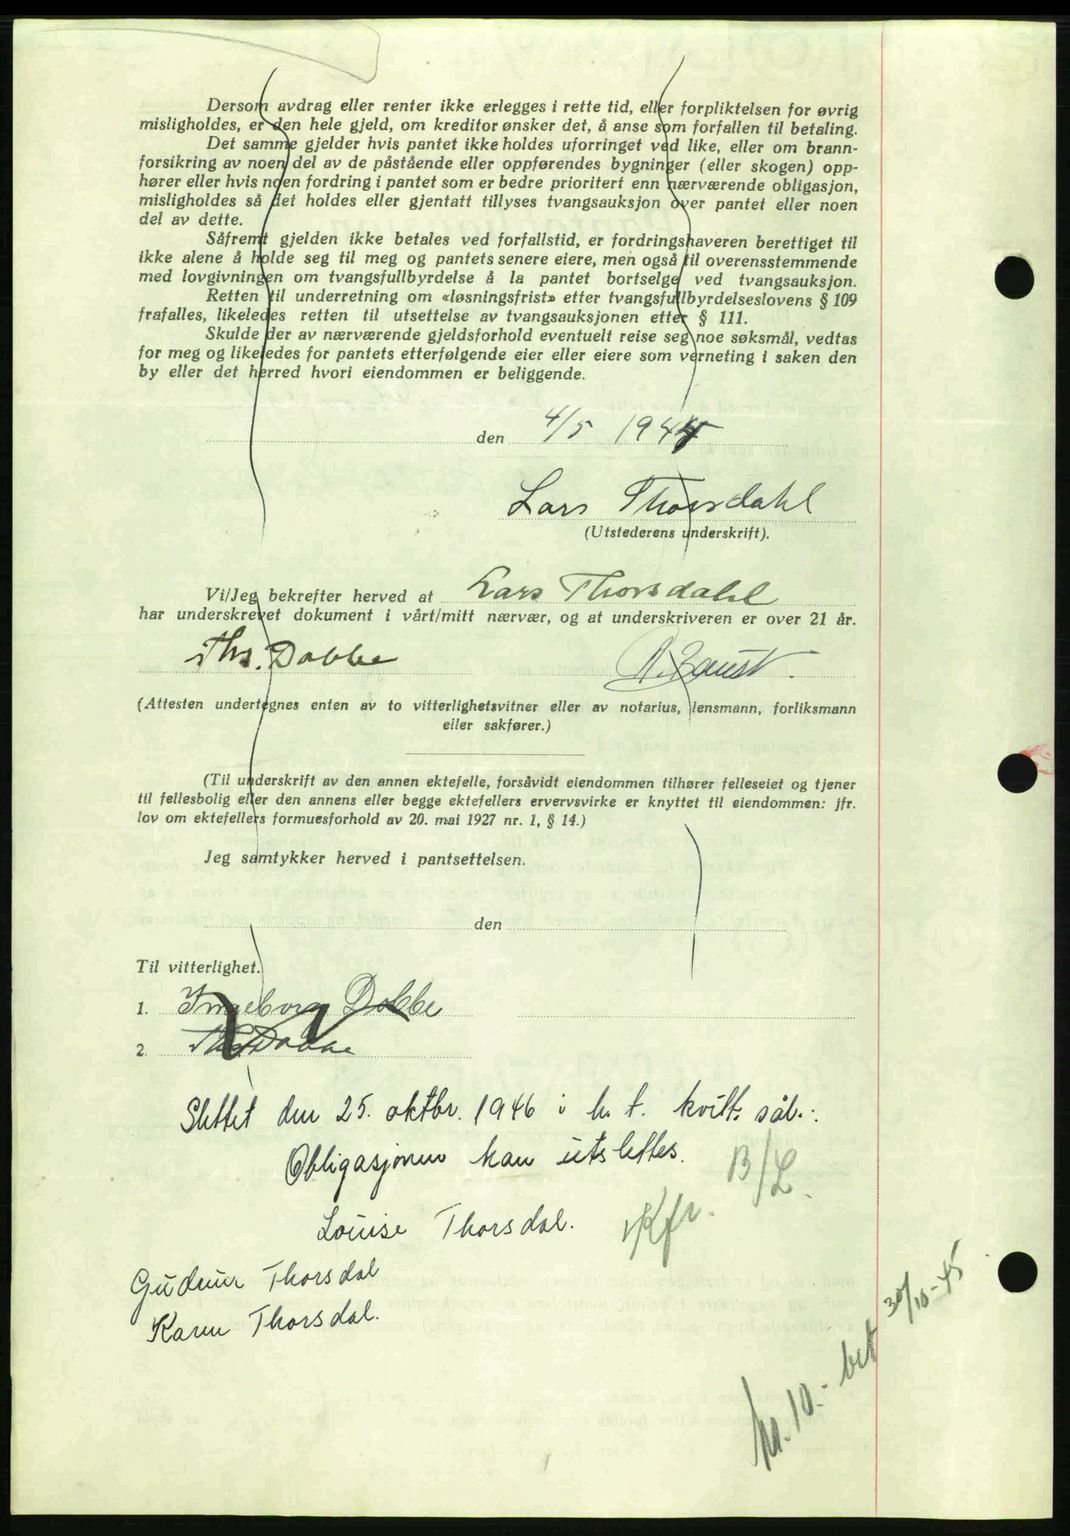 Dersom avdrag eller renter ikke erlegges i rette tid, eller forpliktelsen for øvrig
misligholdes, er den hele gjeld, om kreditor ønsker det, å anse som forfallen til betaling.
Det samme gjelder hvis pantet ikke holdes uforringet ved like, eller om brann-
forsikring av noen del av de påstående eller oppførendes bygninger (eller skogen) opp-
hører eller hvis noen fordring i pantet som er bedre prioritert enn nærværende obligasjon,
misligholdes så det holdes eller gjentatt tillyses tvangsauksjon over pantet eller noen
del av dette.
Såfremt gjelden ikke betales ved forfallstid, er fordringshaveren berettiget til
ikke alene å holde seg til meg og pantets senere eiere, men også til overensstemmende
med lovgivningen om tvangsfullbyrdelse å la pantet bortselge ved tvangsauksjon.
Retten til underretning om «løsningsfrist» etter tvangsfullbyrdelseslovens § 109
frafalles, likeledes retten til utsettelse av tvangsauksjonen etter § 111.
Skulde der av nærværende gjeldsforhold eventuelt reise seg noe søksmål, vedtas
for meg og likeledes for pantets etterfølgende eier eller eiere som verneting i saken den
by eller det herred hvori eiendommen er beliggende.
den 4/5 1944
Lars Thorsdahl
(Utstederens underskrift).
Vi/Jeg bekrefter herved at Lars Thorsdahl
har underskrevet dokument i vårt/mitt nærvær, og at underskriveren er over 21 år.
Ths. Dobbe
(Attesten undertegnes enten av to vitterlighetsvitner eller av notarius, lensmann, forliksmann
eller sakfører.)
(Til underskrift av den annen ektefelle, forsåvidt eiendommen tilhører felleseiet og tjener
til fellesbolig eller den annens eller begge ektefellers ervervsvirke er knyttet til eiendommen: jfr.
lov om ektefellers formuesforhold av 20. mai 1927 nr. 1, § 14.)
Jeg samtykker herved i pantsettelsen.
den
Til vitterlighet.
1. Ingeborg Dobbe
2. Ths. Dobbe
Slettet den 25. oktbr. 1946 i h. t. kvitt. sål.:
Obligasjonen kan utslettes.
B/L.
Louise Thorsdal.
Kfr.
Gudrun Thorsdal
Karen Thorsdal.
kr. 10.- bet 30/10-45